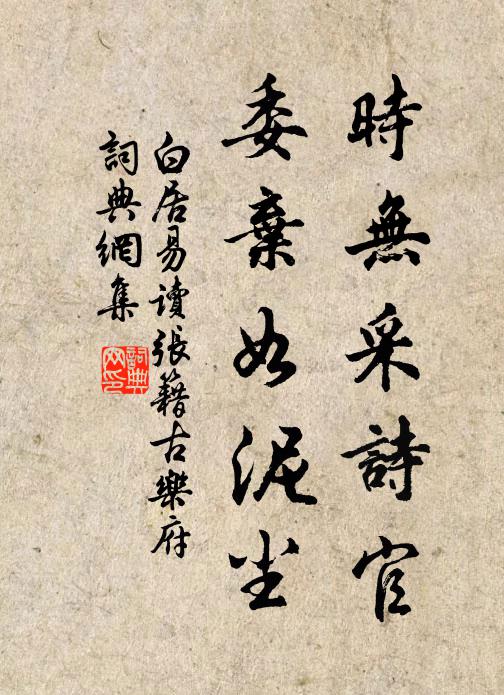 時無采詩官
委棄如泥尘
白居易讀張籍古樂府
詞典網集
詞典网印